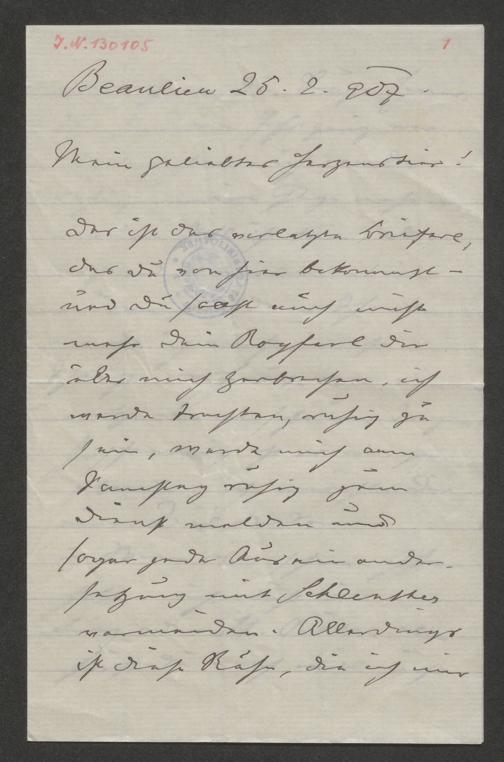 J.N. 130105
1
Beaulieu 25. 2. 907.
Mein geliebtes Herzenstier!
Das ist das vorletzte Brieferl,
das du von hier bekommst –
und du sollst auch nicht
mehr dein Kopferl dir
über mich zerbrechen, ich
werde trachten, ruhig zu
sein, werde mich am
Samstag ruhig zum
Dienst melden und
sogar jede Auseinander-
setzung mit Schlenther
vermeiden. Allerdings
ist diese Ruhe, die ich mir